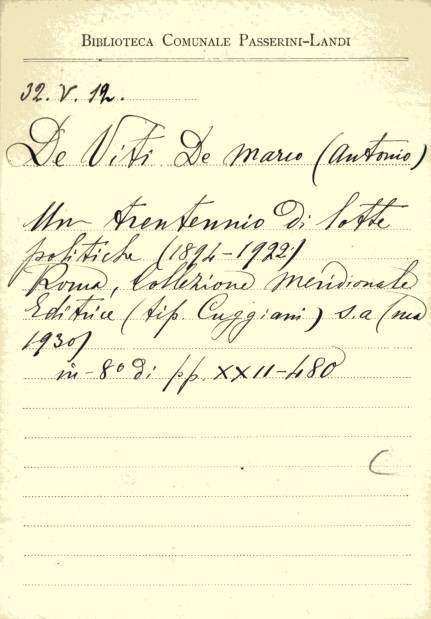 BIBLIOTECA COMUNALE PASSERINI-LANDI
32. V. 12.
De Viti De Marco (Antonio)
Un trentennio di lotte
politiche (1894-1922)
Roma, Collezione meridionale
Editrice (tip. Cuggiani) s.a (ma
1930)
in-8º di pp. XXII-480
C